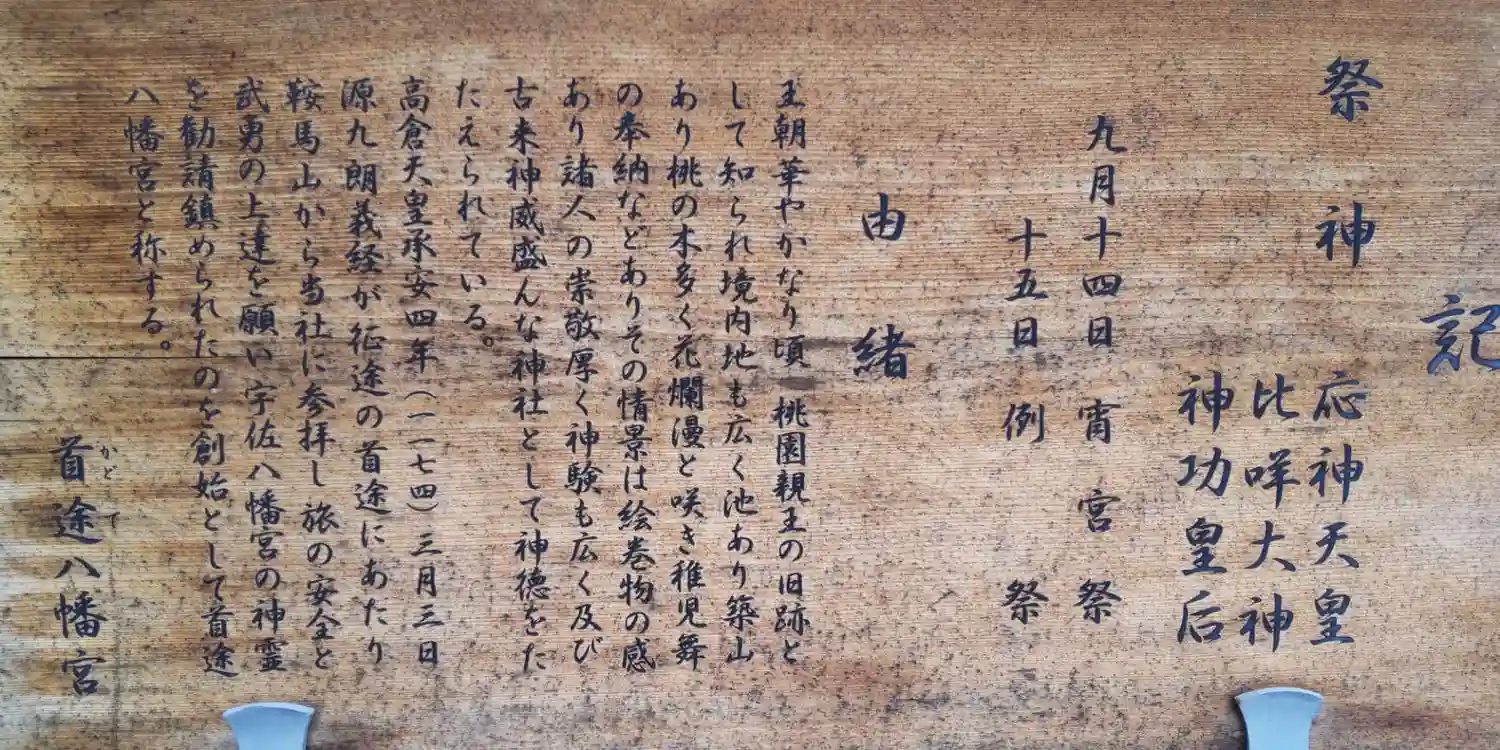 記
祭神
応神天皇
比咩大神
神功皇后
九月十四日 宵宮祭
十五日 例祭
由緒
王朝華やかなり頃 桃園親王の旧跡と
して知られ境内地も広く池あり築山
あり桃の木多く花爛漫と咲き稚児舞
の奉納などありその情景は絵巻物の感
あり諸人の崇敬厚く神験も広く及び
古来神威盛んな神社として神徳をた
たえられている。
高倉天皇承安四年（一一七四）三月三日
源九朗義経が征途の首途にあたり
鞍馬山から当社に参拝し旅の安全と
武勇の上達を願い宇佐八幡宮の神霊
を勧請鎮められたのを創始として首途
八幡宮と称する。
首途八幡宮
かどて